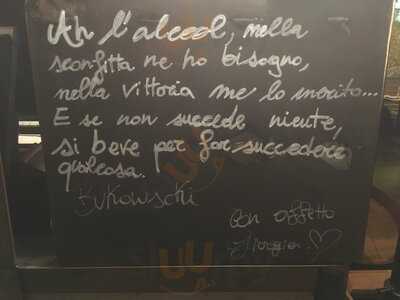 Ah l'alcool, nella
sconfitta ne ho bisogno,
nella vittoria me lo merito...
E se non succede niente,
si beve per far succedere
qualcosa.
Bukowscki
con affetto
Giorgia